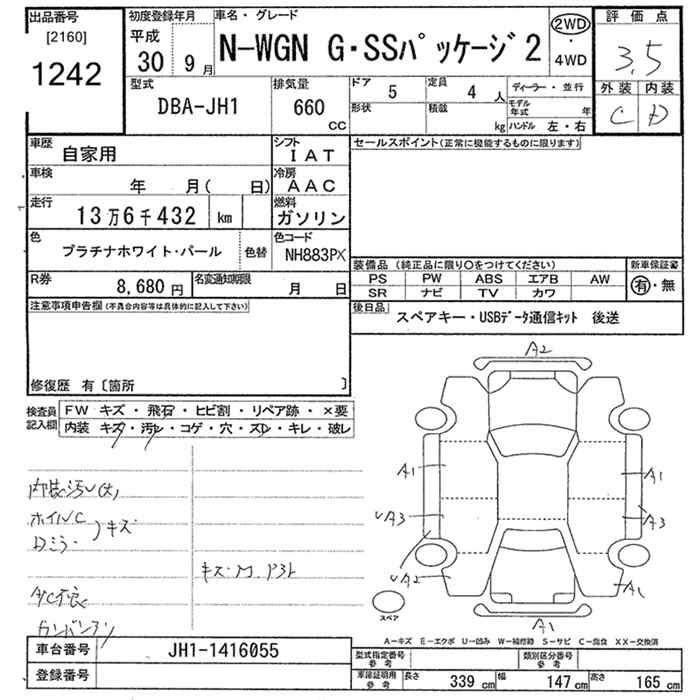 出品番号
[2160]
1242
初度登録年月
平成
30 9月
車名・グレード
N-WGN G・SSパッケージ2
2WD
・
4WD
評価点
3.5
外装 内装
C D
型式
DBA-JH1
排気量
660
CC
ドア 5
定員 4人
形状
積載 kg
ディーラー・並行
モデル年式 年
ハンドル 左・右
車歴 自家用
シフト IAT
車検 年 月( 日)
冷房 AAC
走行 13万6千432 km
燃料 ガソリン
色 プラチナホワイト・パール
色替
色コード NH883PX
R券 8,680円
名変通知期限 月 日
セールスポイント(正常に機能するものに限ります)
装備品(純正品に限り○をつけてください)
新車保証書
PS PW ABS エアB AW
SR ナビ TV カワ
有・無
後日品 スペアキー・USBデータ通信キット 後送
注意事項申告欄(不具合内容等は具体的に記入して下さい)
修復歴 有〔箇所 〕
検査員記入欄
FW キズ・飛石・ヒビ割・リペア跡・×要
内装 キズ・汚レ・コゲ・穴・スレ・キレ・破レ
内装汚レ大
ホイルC
Dミラー
キズ
A/C不良
キズ・M.
A2
A1
A1
A3
A3
A2
A1
A1
スペア
A-キズ E-エクボ U-凹み W-補修跡 S-サビ C-腐食 XX-交換済
車台番号 JH1-1416055
登録番号
型式指定番号 参考
類別区分番号 参考
車庫証明用 参考
長さ 339cm
幅 147cm
高さ 165cm